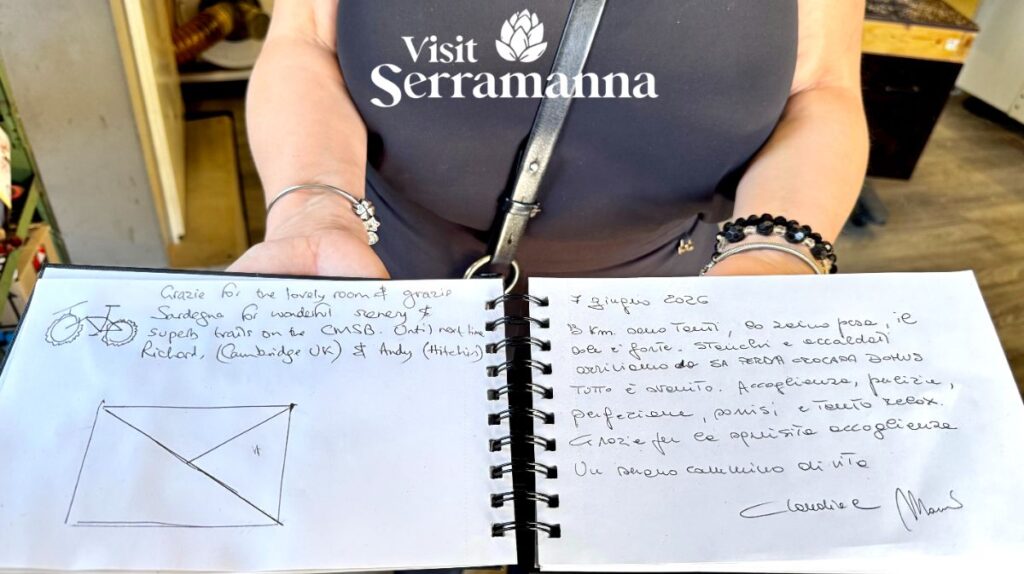 Visit
Serramanna
Grazie for the lovely room & grazie
Sardegna for wonderful scenery &
superb trails on the CMSB. Until next time
Richard, (Cambridge UK) & Andy (Hitchin)
7 giugno 2026
km sono tanti, lo zaino pesa, il
sole è forte. Stanchi e accaldati
arriviamo da SA PERDA CROCADA DOMUS
Tutto è svanito. Accoglienza, pulizia,
perfezione, sorrisi e tanto relax.
Grazie per la squisita accoglienza
Un sereno cammino di vita